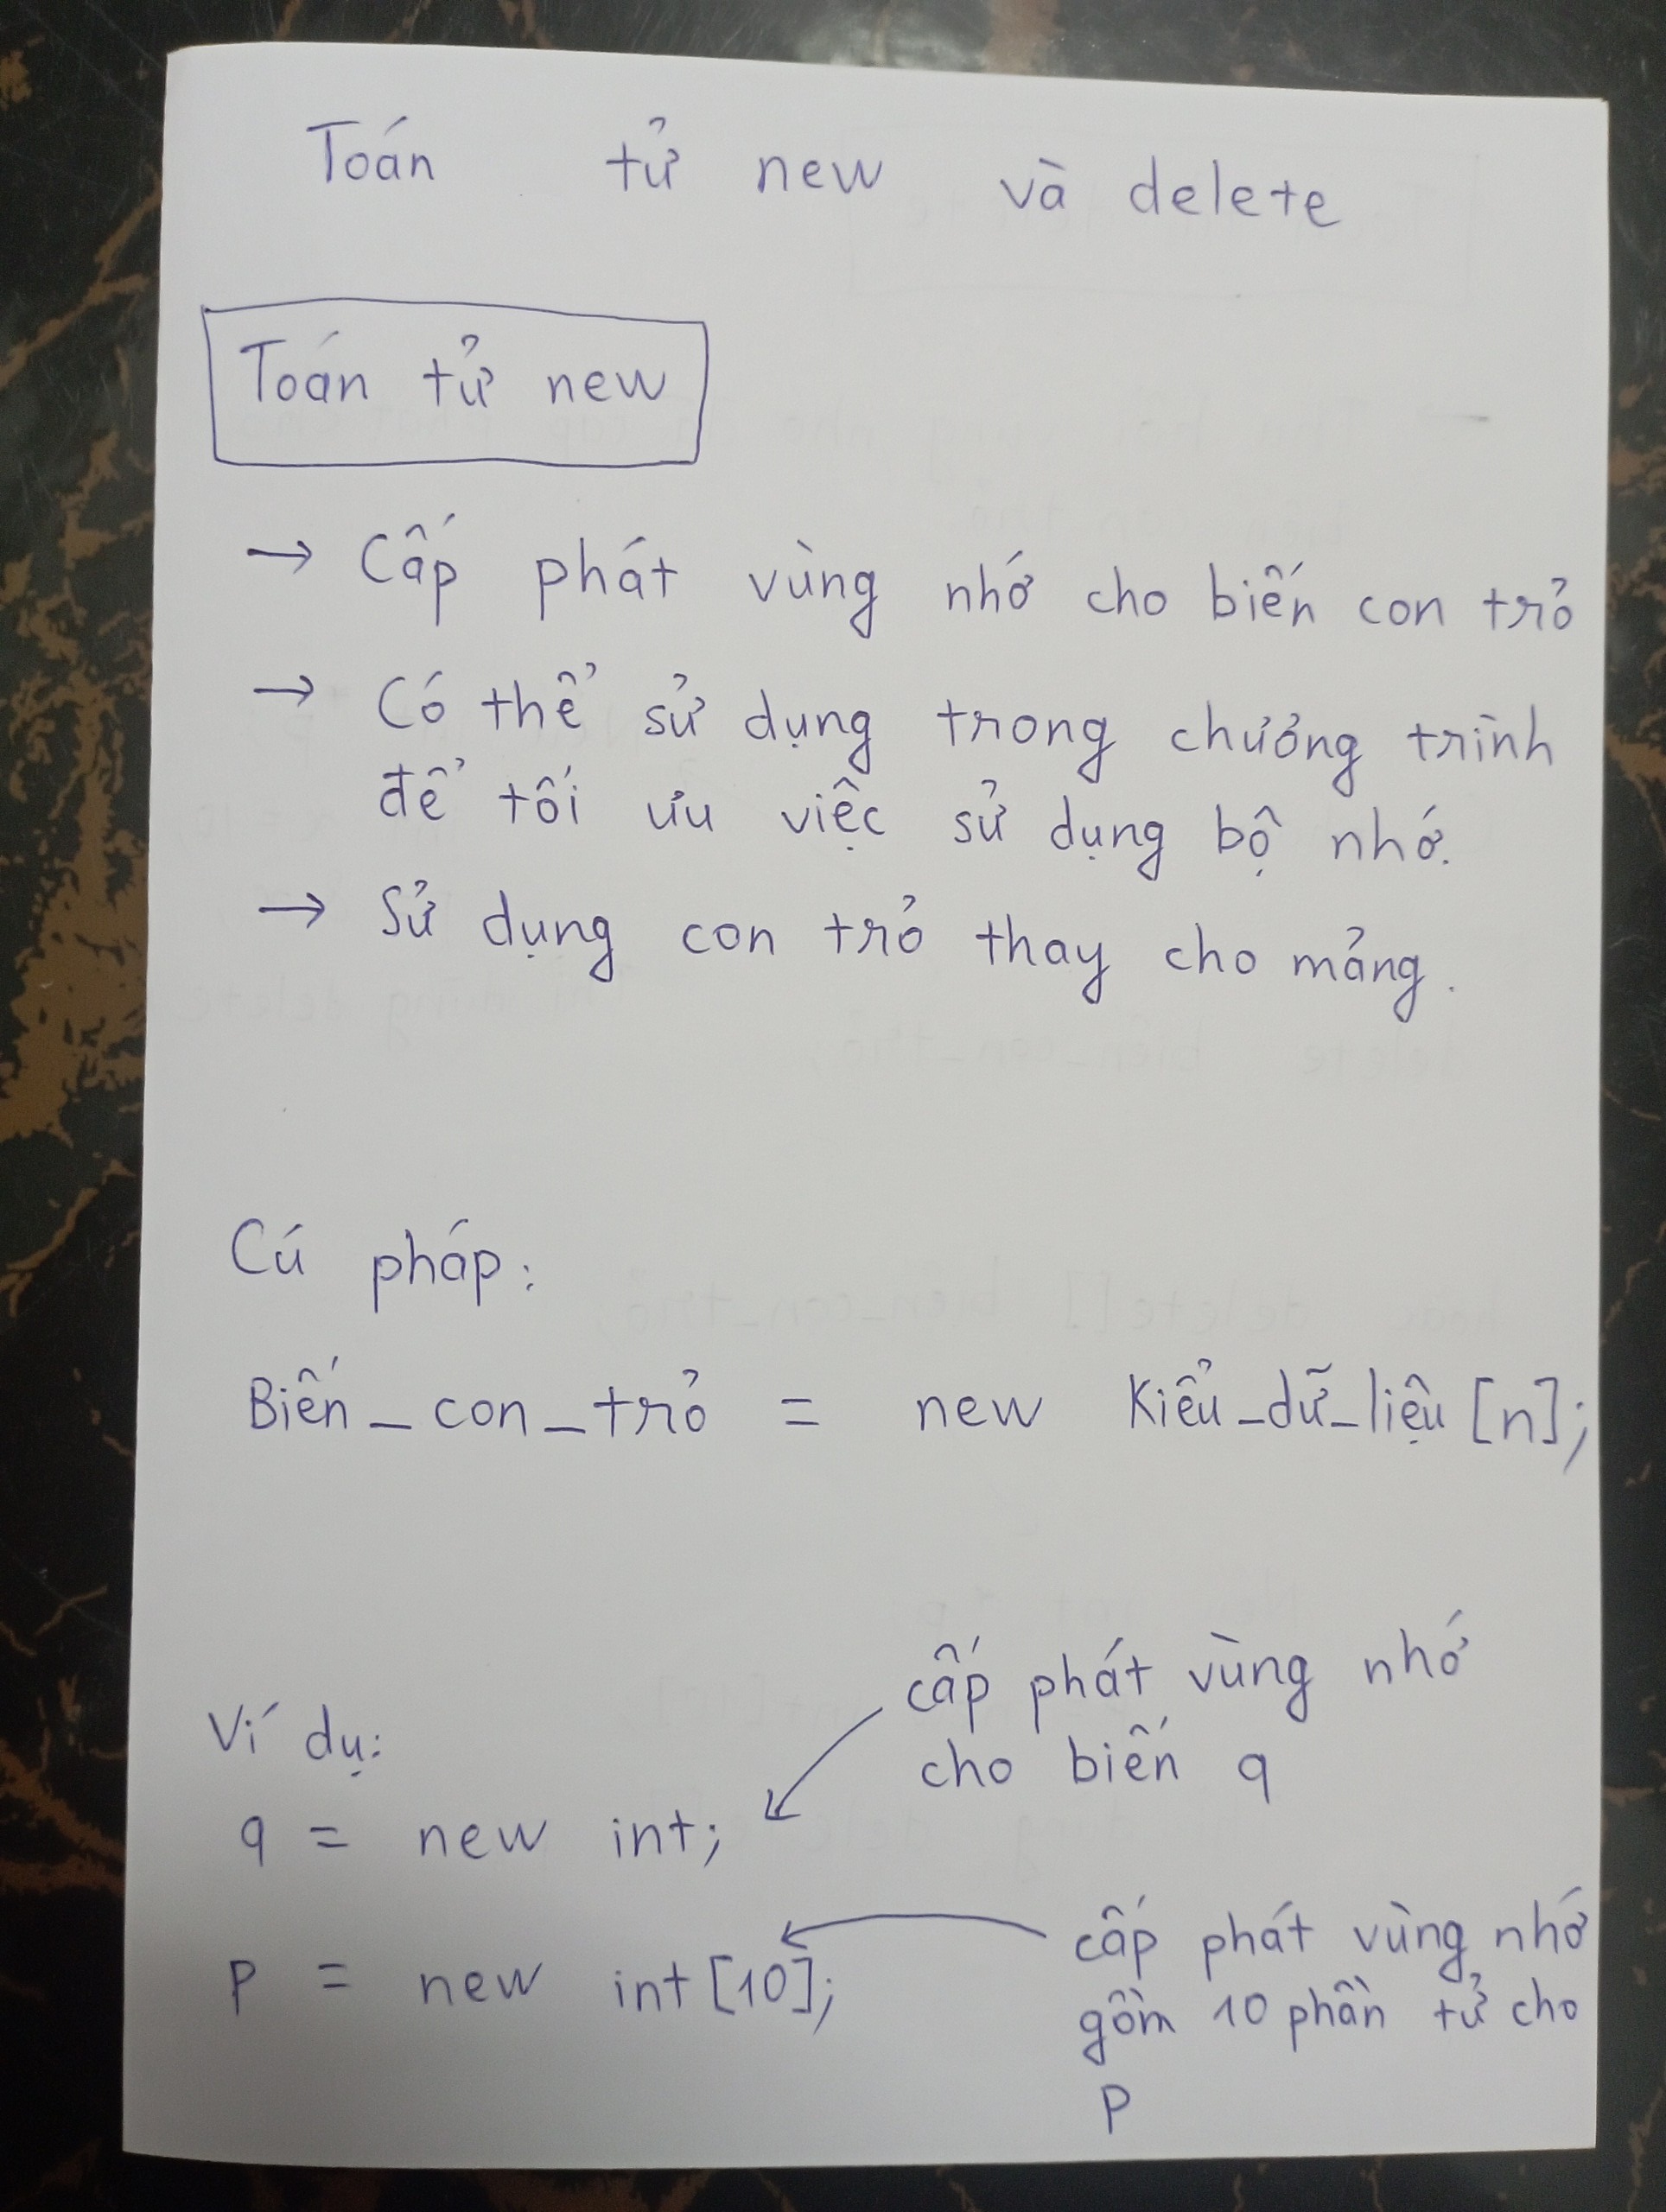 Toán tử new và delete
Toán tử new
→ Cấp phát vùng nhớ cho biến con trỏ
→ Có thể sử dụng trong chương trình
để tối ưu việc sử dụng bộ nhớ.
→ Sử dụng con trỏ thay cho mảng.
Cú pháp:
Biến_con_trỏ = new Kiểu_dữ_liệu [n];
Ví dụ:
cấp phát vùng nhớ
cho biến q
q = new int;
p = new int [10];
cấp phát vùng nhớ
gồm 10 phần tử cho
p